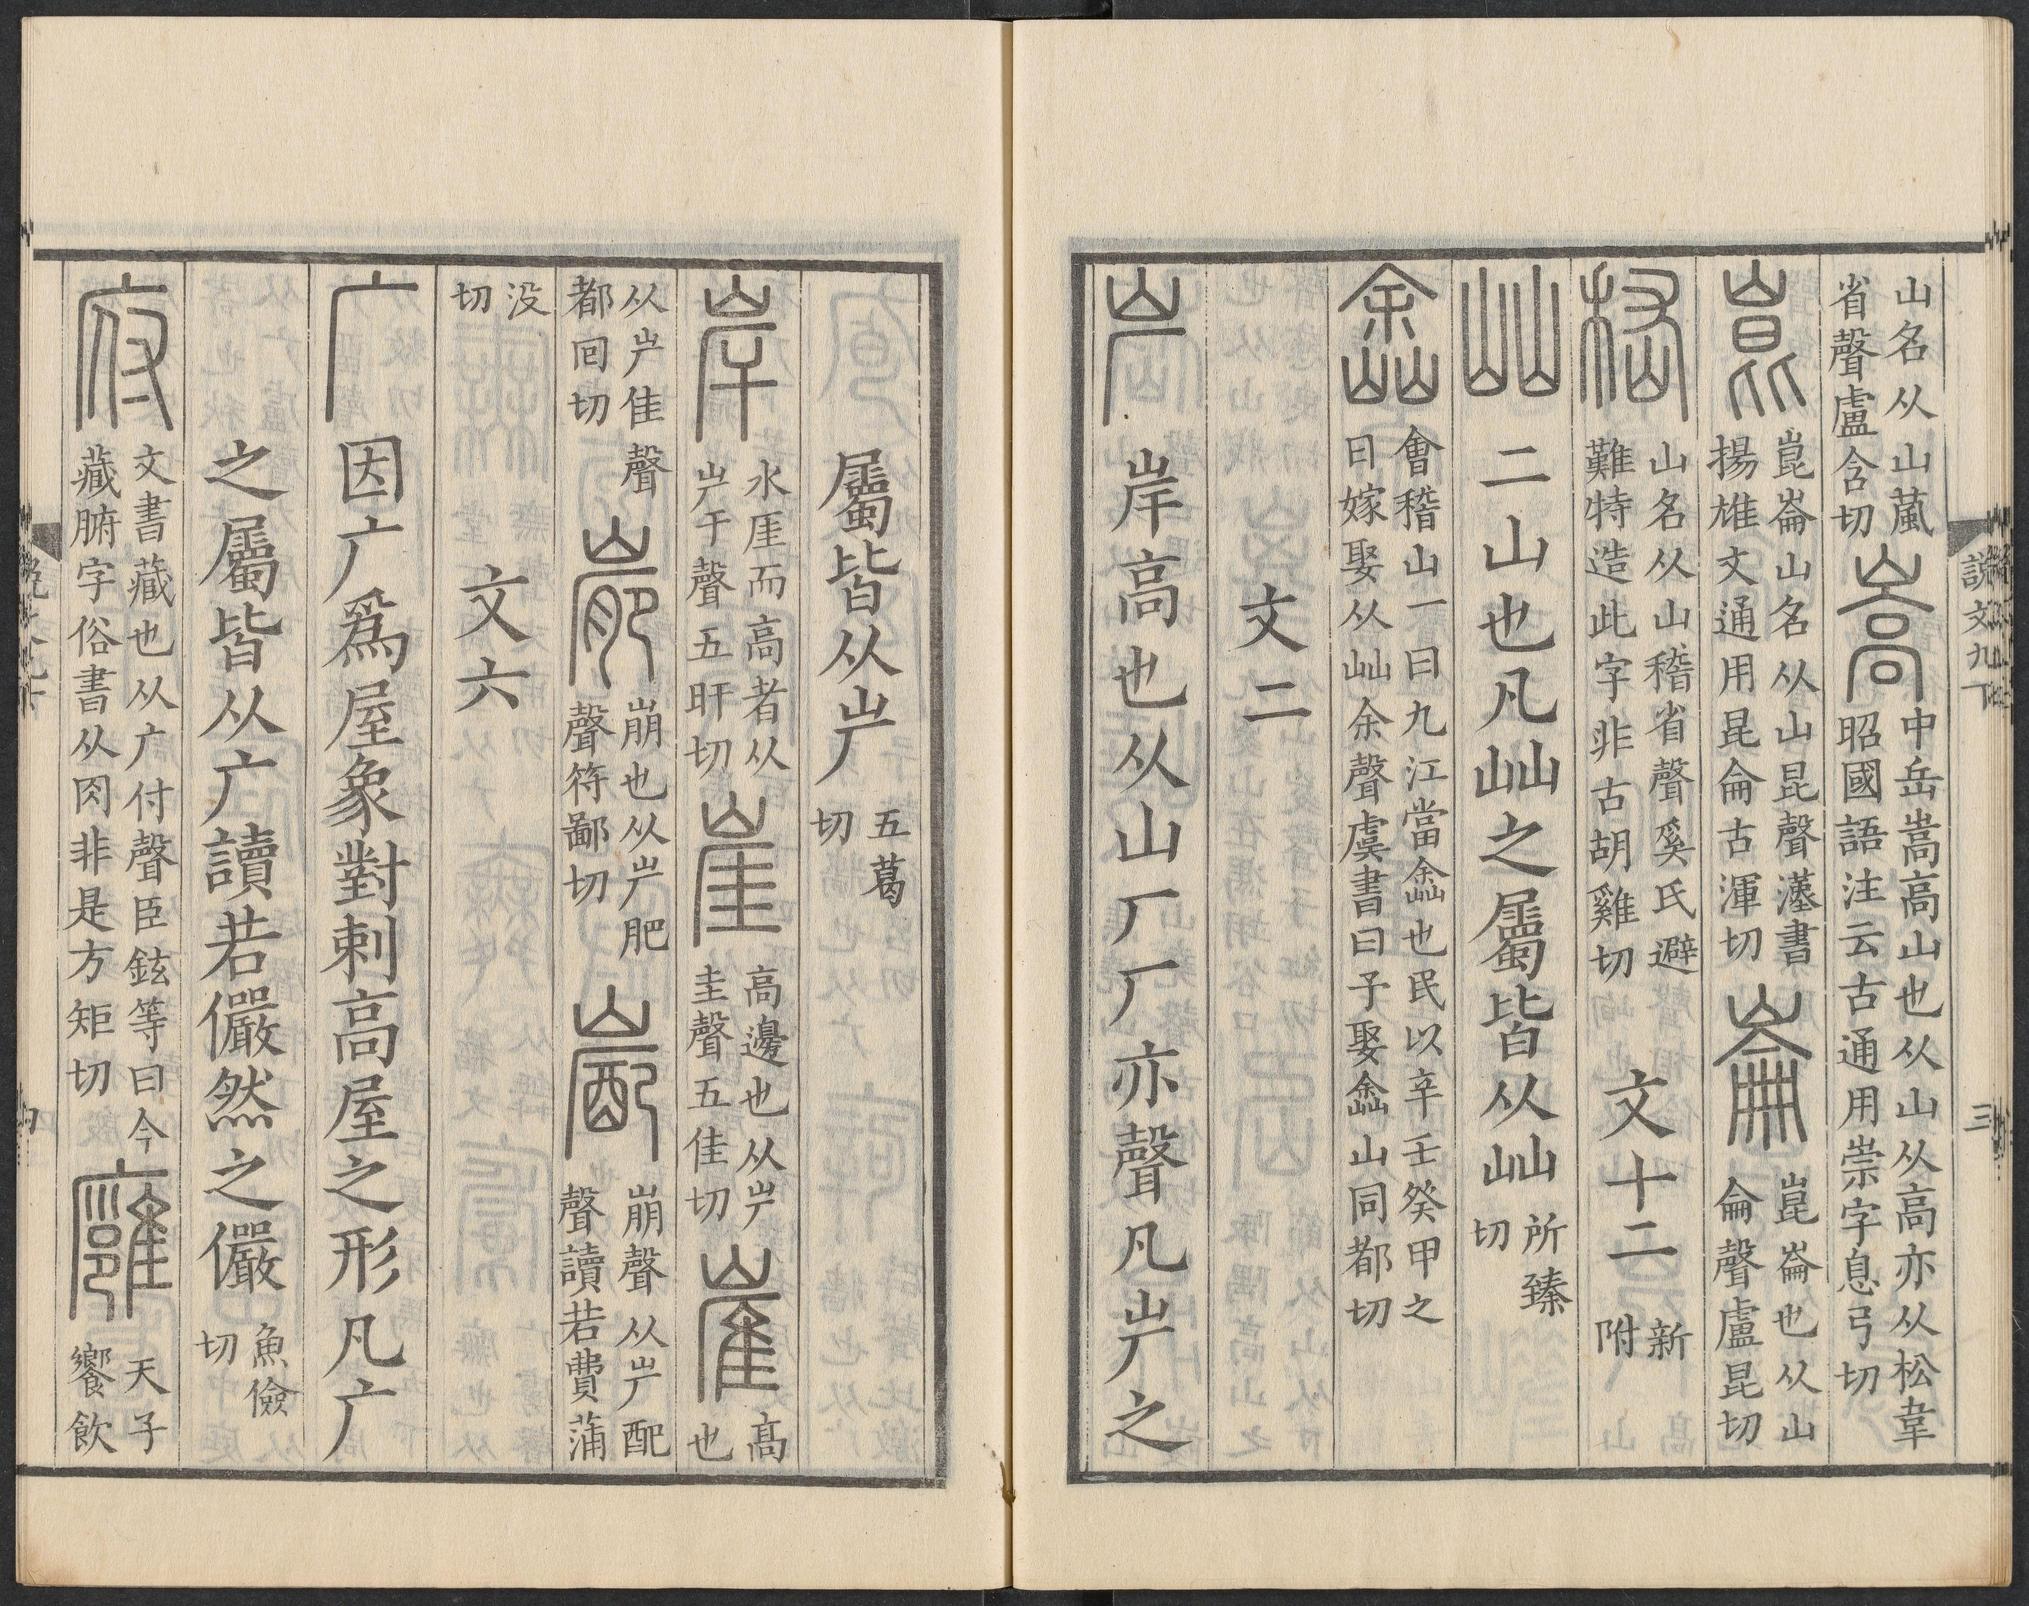 說文九下
三
山名从山嵐
省聲盧含切
嵩
中岳嵩高山也从山从高亦从松韋
昭國語注云古通用崇字息弓切
崑
崑崙山名从山昆聲漢書
揚雄文通用昆侖古渾切
崙
崑崙也从山
侖聲盧昆切
嵇
山名从山稽省聲奚氏避
難特造此字非古胡雞切
文十二
新
附
屾
二山也凡屾之屬皆从屾
所臻
切
嵞
會稽山一曰九江當嵞也民以辛壬癸甲之
日嫁娶从屾余聲虞書曰予娶嵞山同都切
文二
屵
岸高也从山厂厂亦聲凡屵之
屬皆从屵
五葛
切
岸
水厓而高者从
屵干聲五旰切
崖
高邊也从屵
圭聲五佳切
嶊
高
也
从屵隹聲
都回切
嶏
崩也从屵肥
聲符鄙切
嶏
崩聲从屵配
聲讀若費蒲
没
切
文六
广
因广爲屋象對刺高屋之形凡广
之屬皆从广讀若儼然之儼
魚儉
切
府
文書藏也从广付聲臣鉉等曰今
藏腑字俗書从肉非是方矩切
廱
天子
饗飲